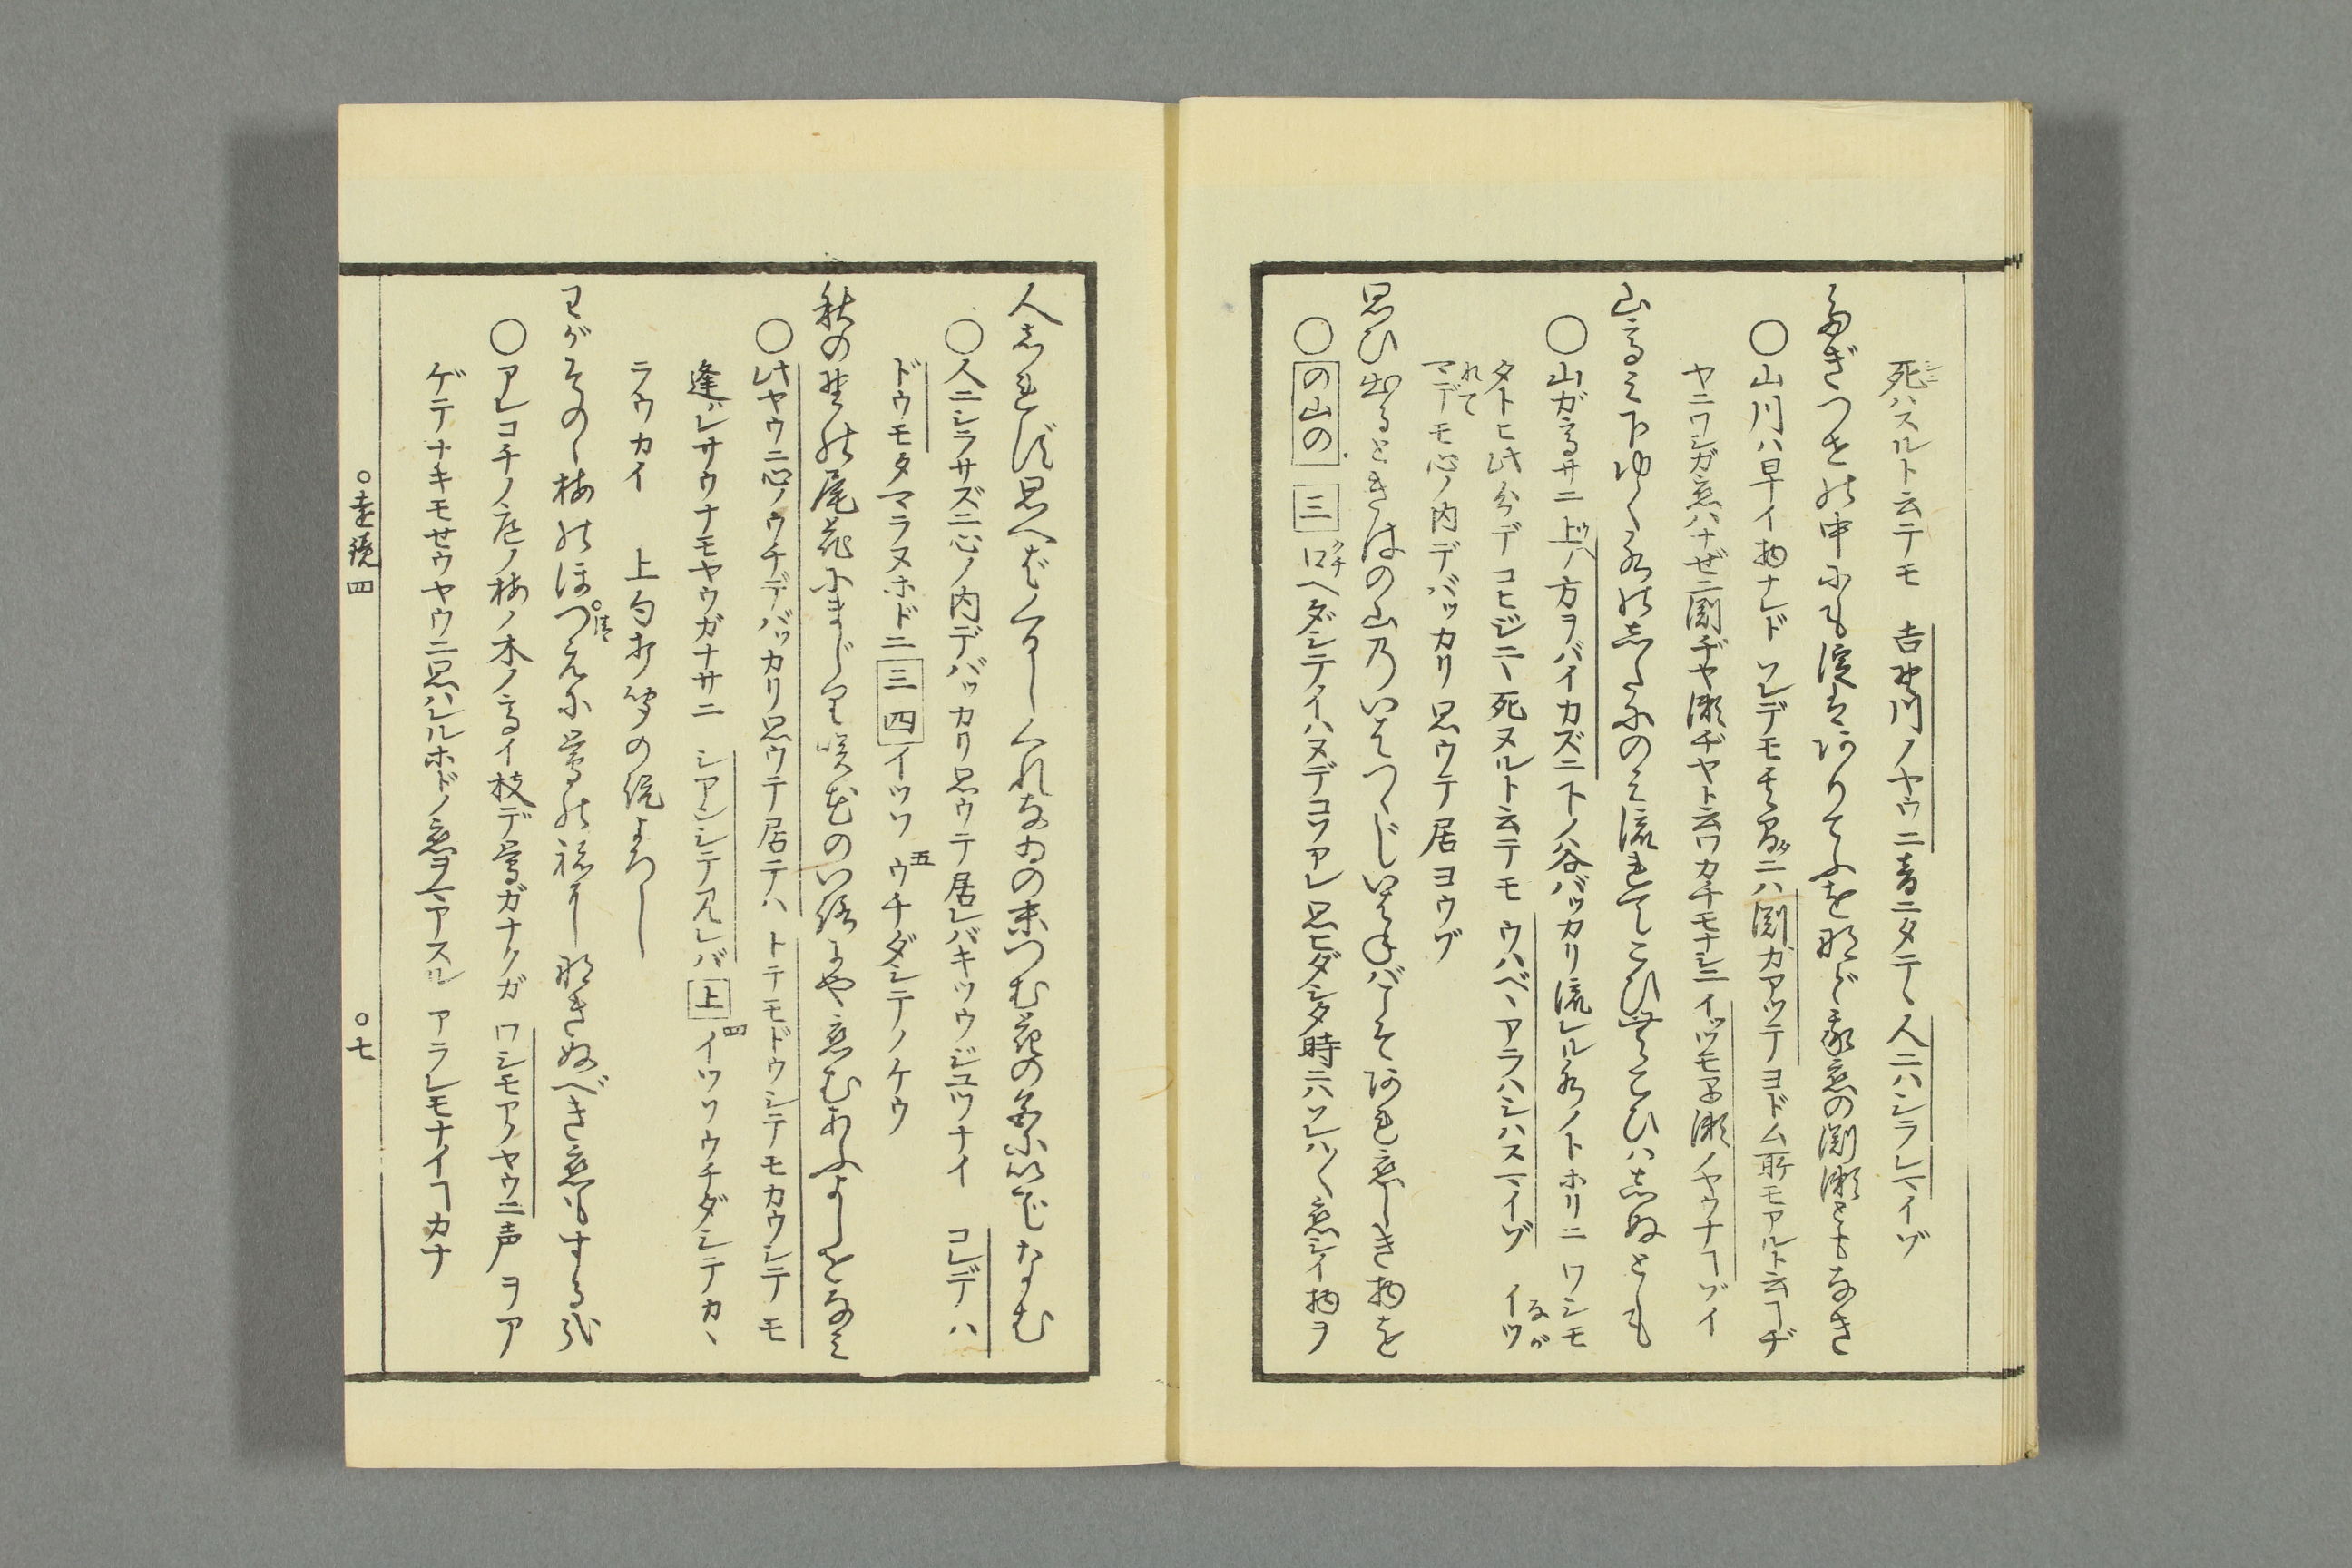 死ハスルト云テモ 吉野川ノヤウニ音ニタテヽ人ニハシラレマイゾ
たぎつせの中にも淀はありてふを那ど我恋の淵瀬ともなき
○山川ハ早イ物ナレド ソレデモ其間ニハ淵ガアツテヨドム所モアルト云ヿヂ
ヤニワシガ恋ハナゼニ淵ヂヤ瀬ヂヤト云ワカチモナシニイツモ早瀬ノヤウナヿゾイ
山高み下ゆく水の志たにのみ流れてこひむこひハ志ぬとも
○山ガ高サニ上ノ方ヲバイカズニ下ノ谷バッカリ流レル水ノトホリニ ワシモ
タトヒ此分デコヒジニヽ死ヌルト云テモ ウハベヽアラハシハスマイゾ イツ
ながれて
マデモ心ノ内デバッカリ思ウテ居ヨウゾ
思ひ出るときはの山乃いはつゝじいはねばこそあれ恋しき物を
○の山の 三 口ヘダシテイハヌデコソアレ思ヒダシタ時ニハソレハ〳〵恋シイ物ヲ
人志れず思へばくるしくれなゐの末つむ花の色に出なむ
○人ニシラサズニ心ノ内デバッカリ思ウテ居レバキツウジユツナイ コレデハ
ドウモタマラヌホドニ 三 四 イッソ 五 ウチダシテノケウ
秋の野の尾花にまじり咲花のいろにや恋むあふよしをなみ
○此ヤウニ心ノウチデバッカリ思ウテ居テハ トテモドウシテモカウシテモ
逢レサウナモヤウガナサニ シアンシテ見レバ 上 四 イッソウチダシテカヽ
ラウカイ 上句打聞の説よろし
わがそのゝ梅のほつえに鶯の音に那きぬべき恋もする哉
○アレコチノ庭ノ梅ノ木ノ高イ枝デ鶯ガナクガ ワシモアノヤウニ声ヲア
ゲテナキモセウヤウニ思ハレルホドノ恋ヲマアスル アラレモナイヿカナ
○遠鏡四 ○七